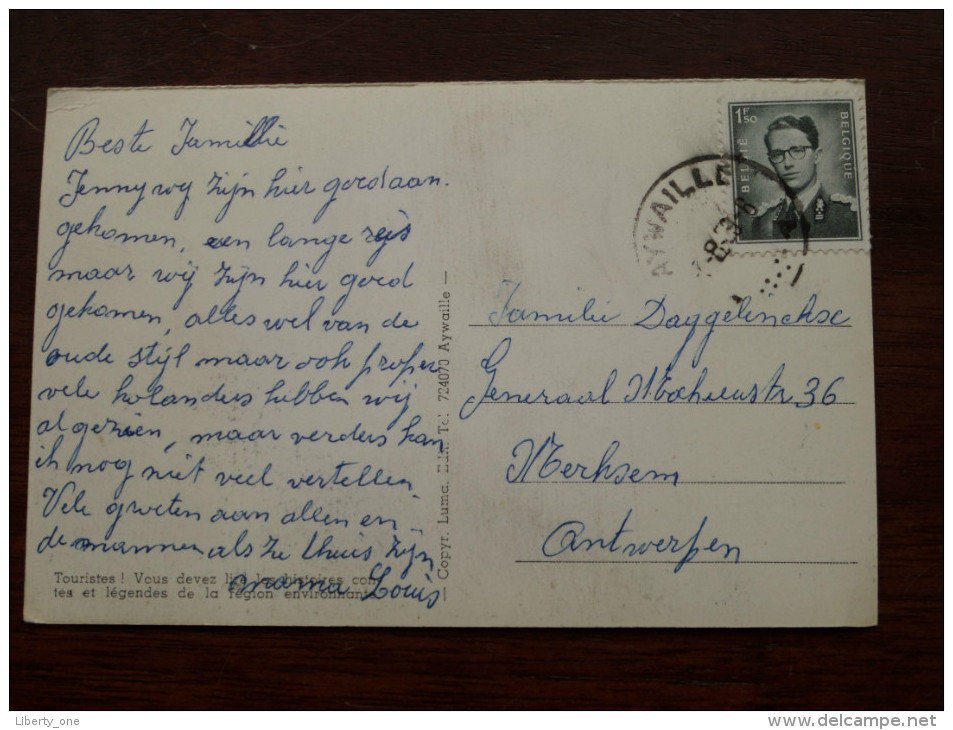 Beste Familie
Jenny wij zijn hier goed aan.
gekomen, een lange rijs
maar wij zijn hier goed
gekomen, alles wel van de
oude stijl maar ook proper
vele holanders hebben wij
al gezien, maar verders kan
ik nog niet veel vertellen.
Vele groeten aan allen en
de mannen als ze thuis zijn
mama Louis
Touristes ! Vous devez lire les histoires con-
tes et légendes de la région environnante
— Copyr. Luma. Edit. Tel. 724070 Aywaille —
1F50
BELGIË
BELGIQUE
AYWAILLE
Familie Daggelinckse
Generaal 36
Merksem
Antwerpen
Liberty_one
http://www.delcampe.net